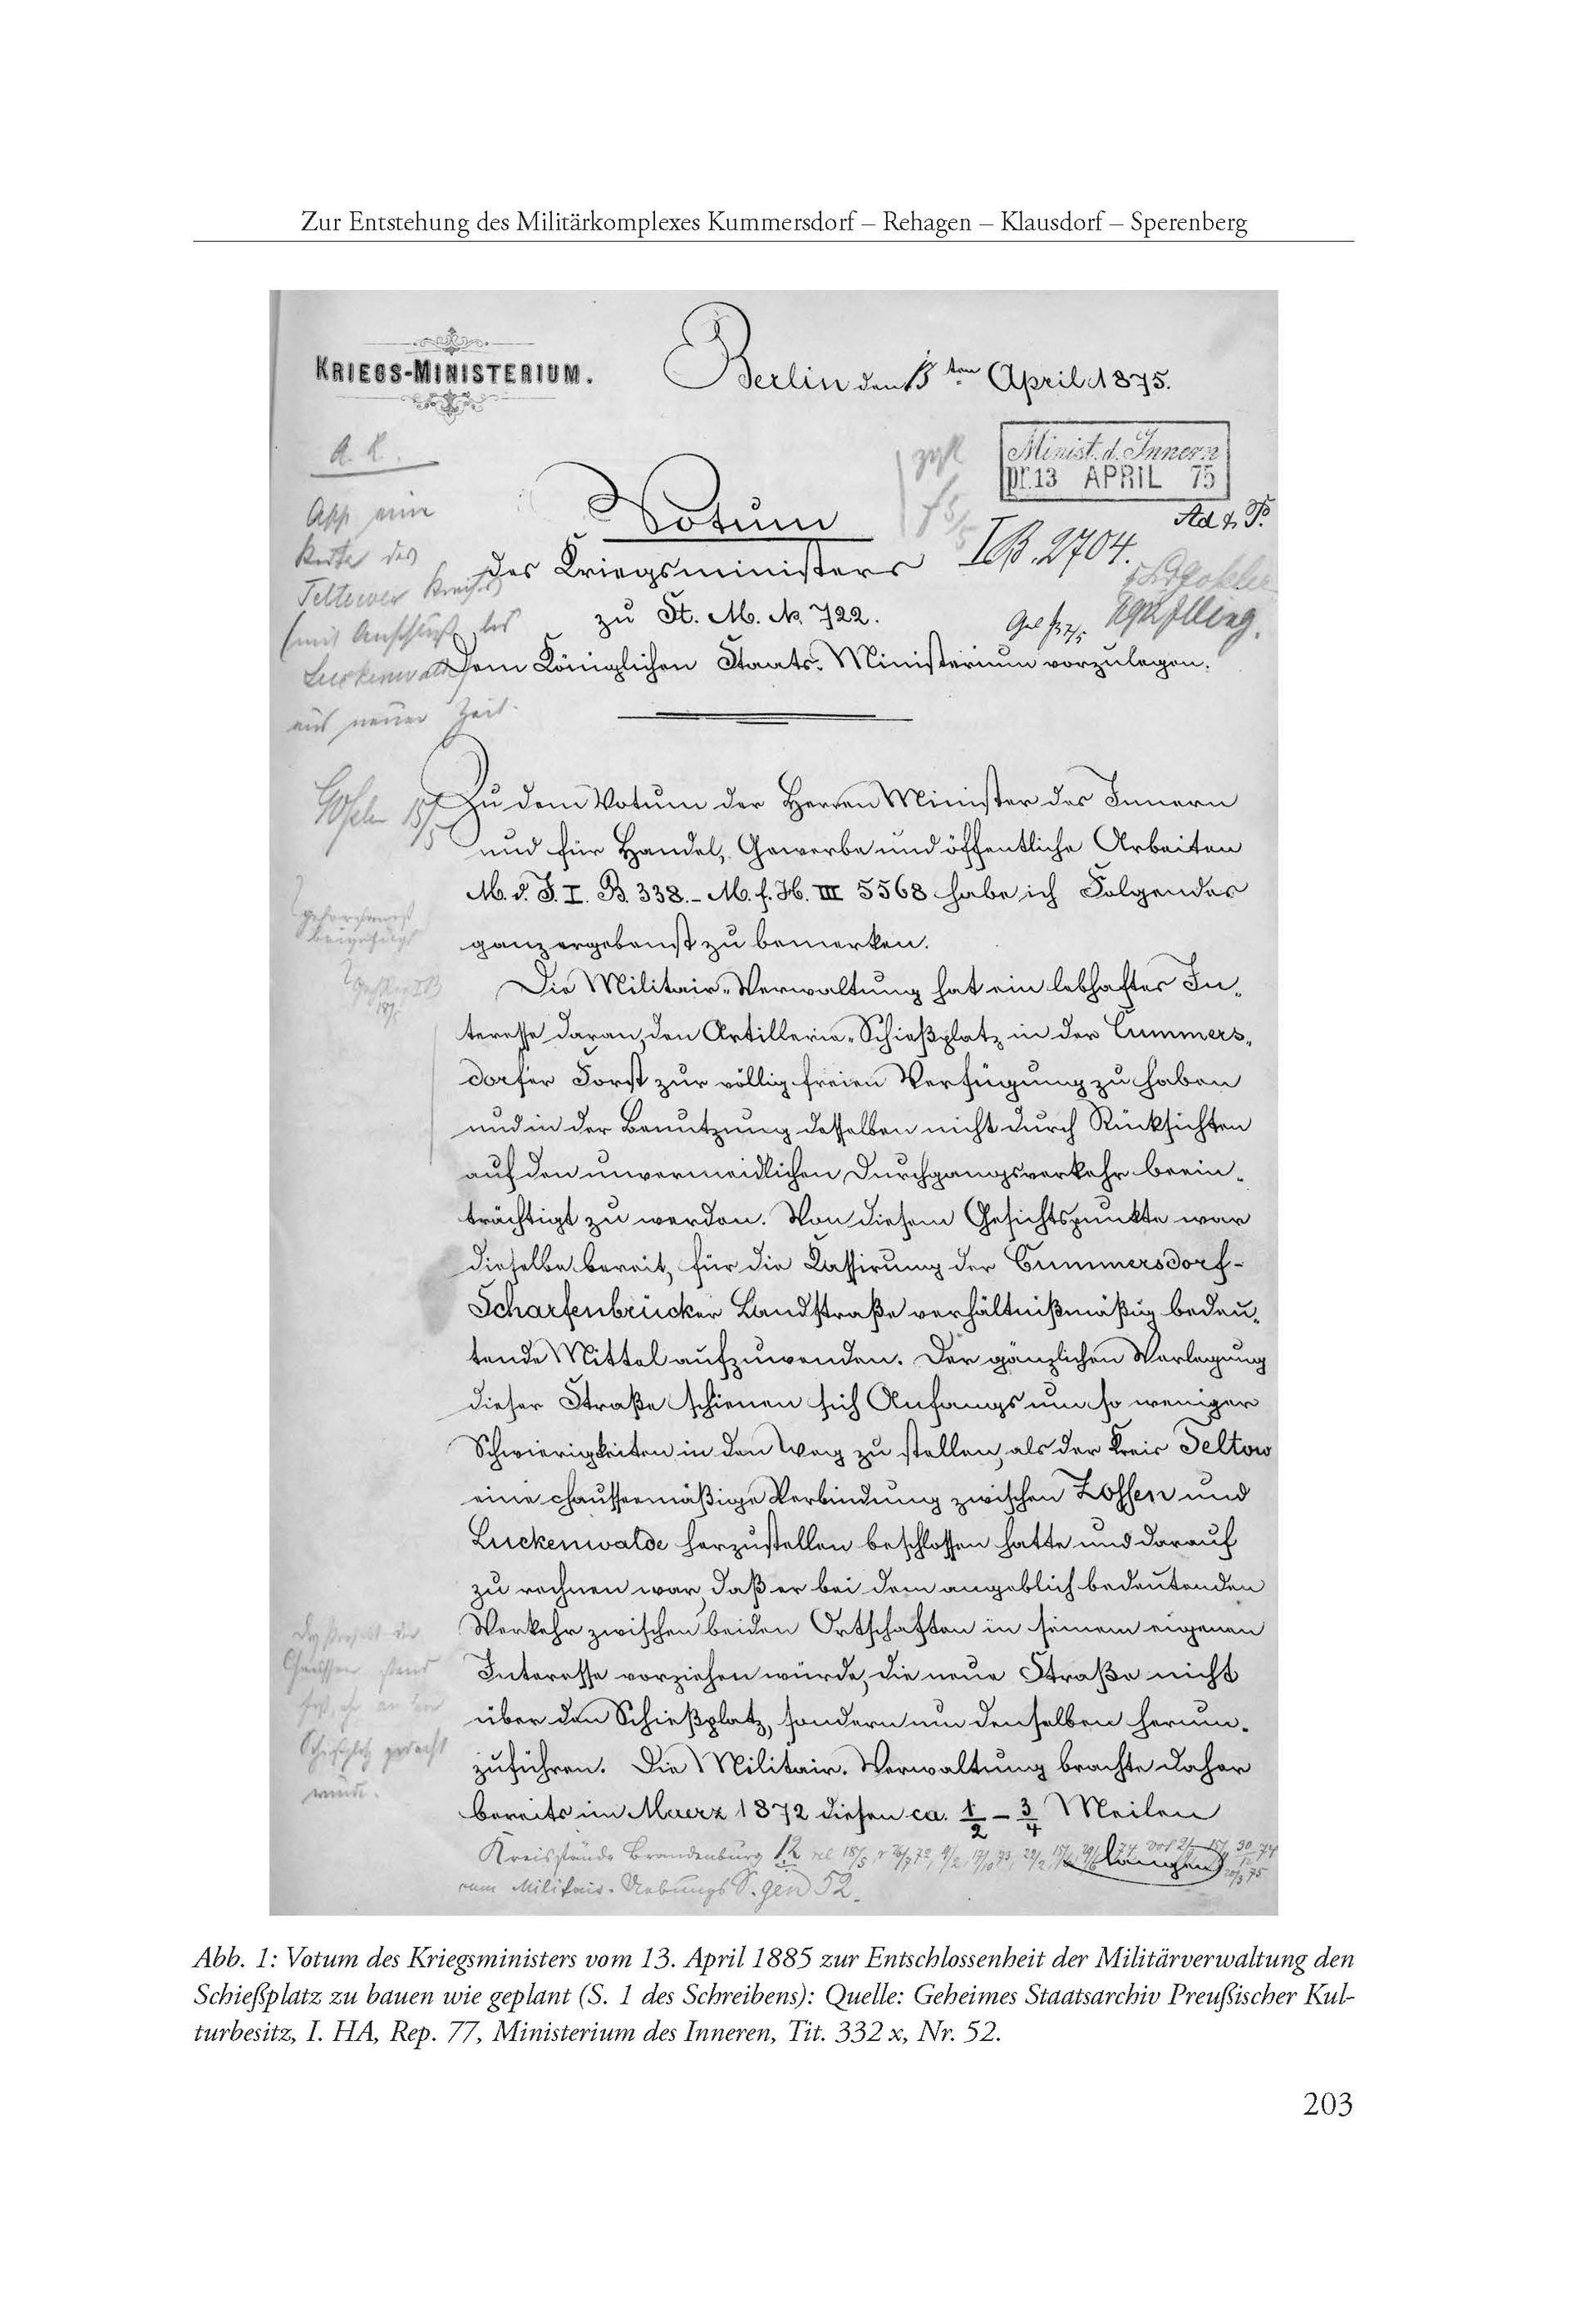 Zur Entstehung des Militärkomplexes Kummersdorf – Rehagen – Klausdorf – Sperenberg
KRIEGS-MINISTERIUM.
Berlin den 13ten April 1875.
Minist. d. Innern
pr. 13 APRIL 75
A. R.
Votum
des Kriegsministers
I B. 2704.
zu St. M. No. 722.
Dem Königlichen Staats-Ministerium vorzulegen.
App eine
Karte des
Teltower Kreises
(mit Anschluß des
Luckenwald
aus neuer Zeit.
Zu dem Votum der Herren Minister des Innern
und für Handel, Gewerbe und öffentliche Arbeiten
M. d. J. I. B. 338. – M. f. H. III 5568 habe ich Folgendes
ganz ergebenst zu bemerken.
Die Militair-Verwaltung hat ein lebhaftes In-
teresse daran, den Artillerie-Schießplatz in der Cummers-
dorfer Forst zur völlig freien Verfügung zu haben
und in der Benutzung desselben nicht durch Rücksichten
auf den unvermeidlichen Durchgangsverkehr beein-
trächtigt zu werden. Von diesem Gesichtspunkte war
dieselbe bereit, für die Kassirung der Cummersdorf-
Scharfenbrücker Landstraße verhältnißmäßig bedeu-
tende Mittel aufzuwenden. Der gänzlichen Verlegung
dieser Straße schienen sich Anfangs um so weniger
Schwierigkeiten in den Weg zu stellen, als der Kreis Teltow
eine chausseemäßige Verbindung zwischen Zossen und
Luckenwalde herzustellen beschlossen hatte und darauf
zu rechnen war, daß er bei dem angeblich bedeutenden
Verkehr zwischen beiden Ortschaften in seinem eigenen
Interesse vorziehen würde, die neue Straße nicht
über den Schießplatz, sondern um denselben herum-
zuführen. Die Militair-Verwaltung brachte daher
bereits im Maerz 1872 diesen ca. 1/2 – 3/4 Meilen
langen
Kreisstände Brandenburg 12
zum Militair-Uebungs S. gen 52.
Abb. 1: Votum des Kriegsministers vom 13. April 1885 zur Entschlossenheit der Militärverwaltung den
Schießplatz zu bauen wie geplant (S. 1 des Schreibens): Quelle: Geheimes Staatsarchiv Preußischer Kul-
turbesitz, I. HA, Rep. 77, Ministerium des Inneren, Tit. 332 x, Nr. 52.
203